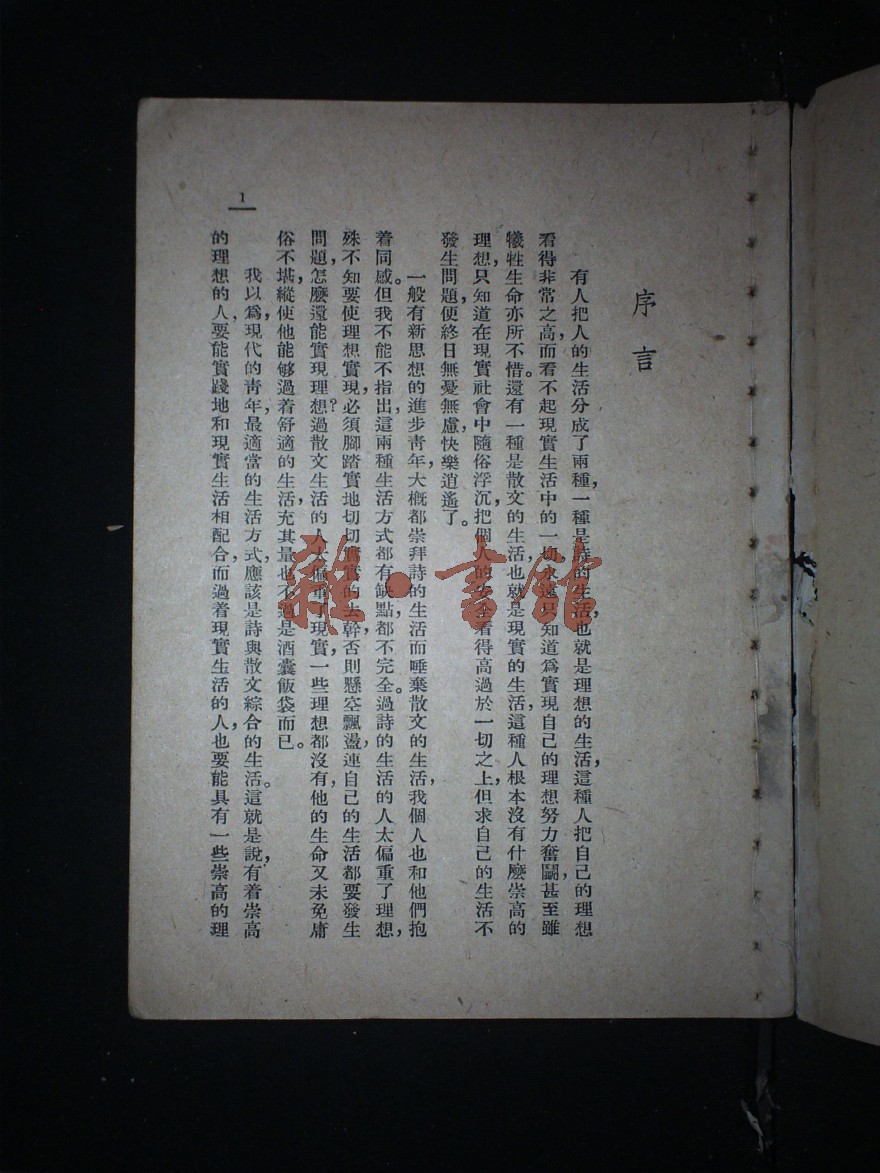 序言
有人把人的生活分成了兩種，一種是詩的生活，也就是理想的生活，這種人把自己的理想
看得非常之高，而看不起現實生活中的一切，永遠只知道爲實現自己的理想努力奮鬭，甚至雖
犧牲生命亦所不惜。還有一種是散文的生活，也就是現實的生活，這種人根本沒有什麼崇高的
理想，只知道在現實社會中隨俗浮沉，把個人的安全看得高過於一切之上，但求自己的生活不
發生問題，便終日無憂無慮，快樂逍遙了。
一般有新思想的進步靑年，大概都崇拜詩的生活而唾棄散文的生活，我個人也和他們抱
着同感。但我不能不指出，這兩種生活方式都有缺點，都不完全。過詩的生活的人太偏重了理想，
殊不知要使理想實現，必須腳踏實地切切實實的去幹，否則懸空飄盪，連自己的生活都要發生
問題，怎麼還能實現理想？過散文生活的人太偏重了現實，一些理想都沒有，他的生命又未免庸
俗不堪，縱使他能够過着舒適的生活，充其量也不過是酒囊飯袋而已。
我以爲，現代的靑年，最適當的生活方式，應該是詩與散文綜合的生活。這就是說，有着崇高
的理想的人，要能實踐地和現實生活相配合，而過着現實生活的人，也要能具有一些崇高的理
1
雜·書館